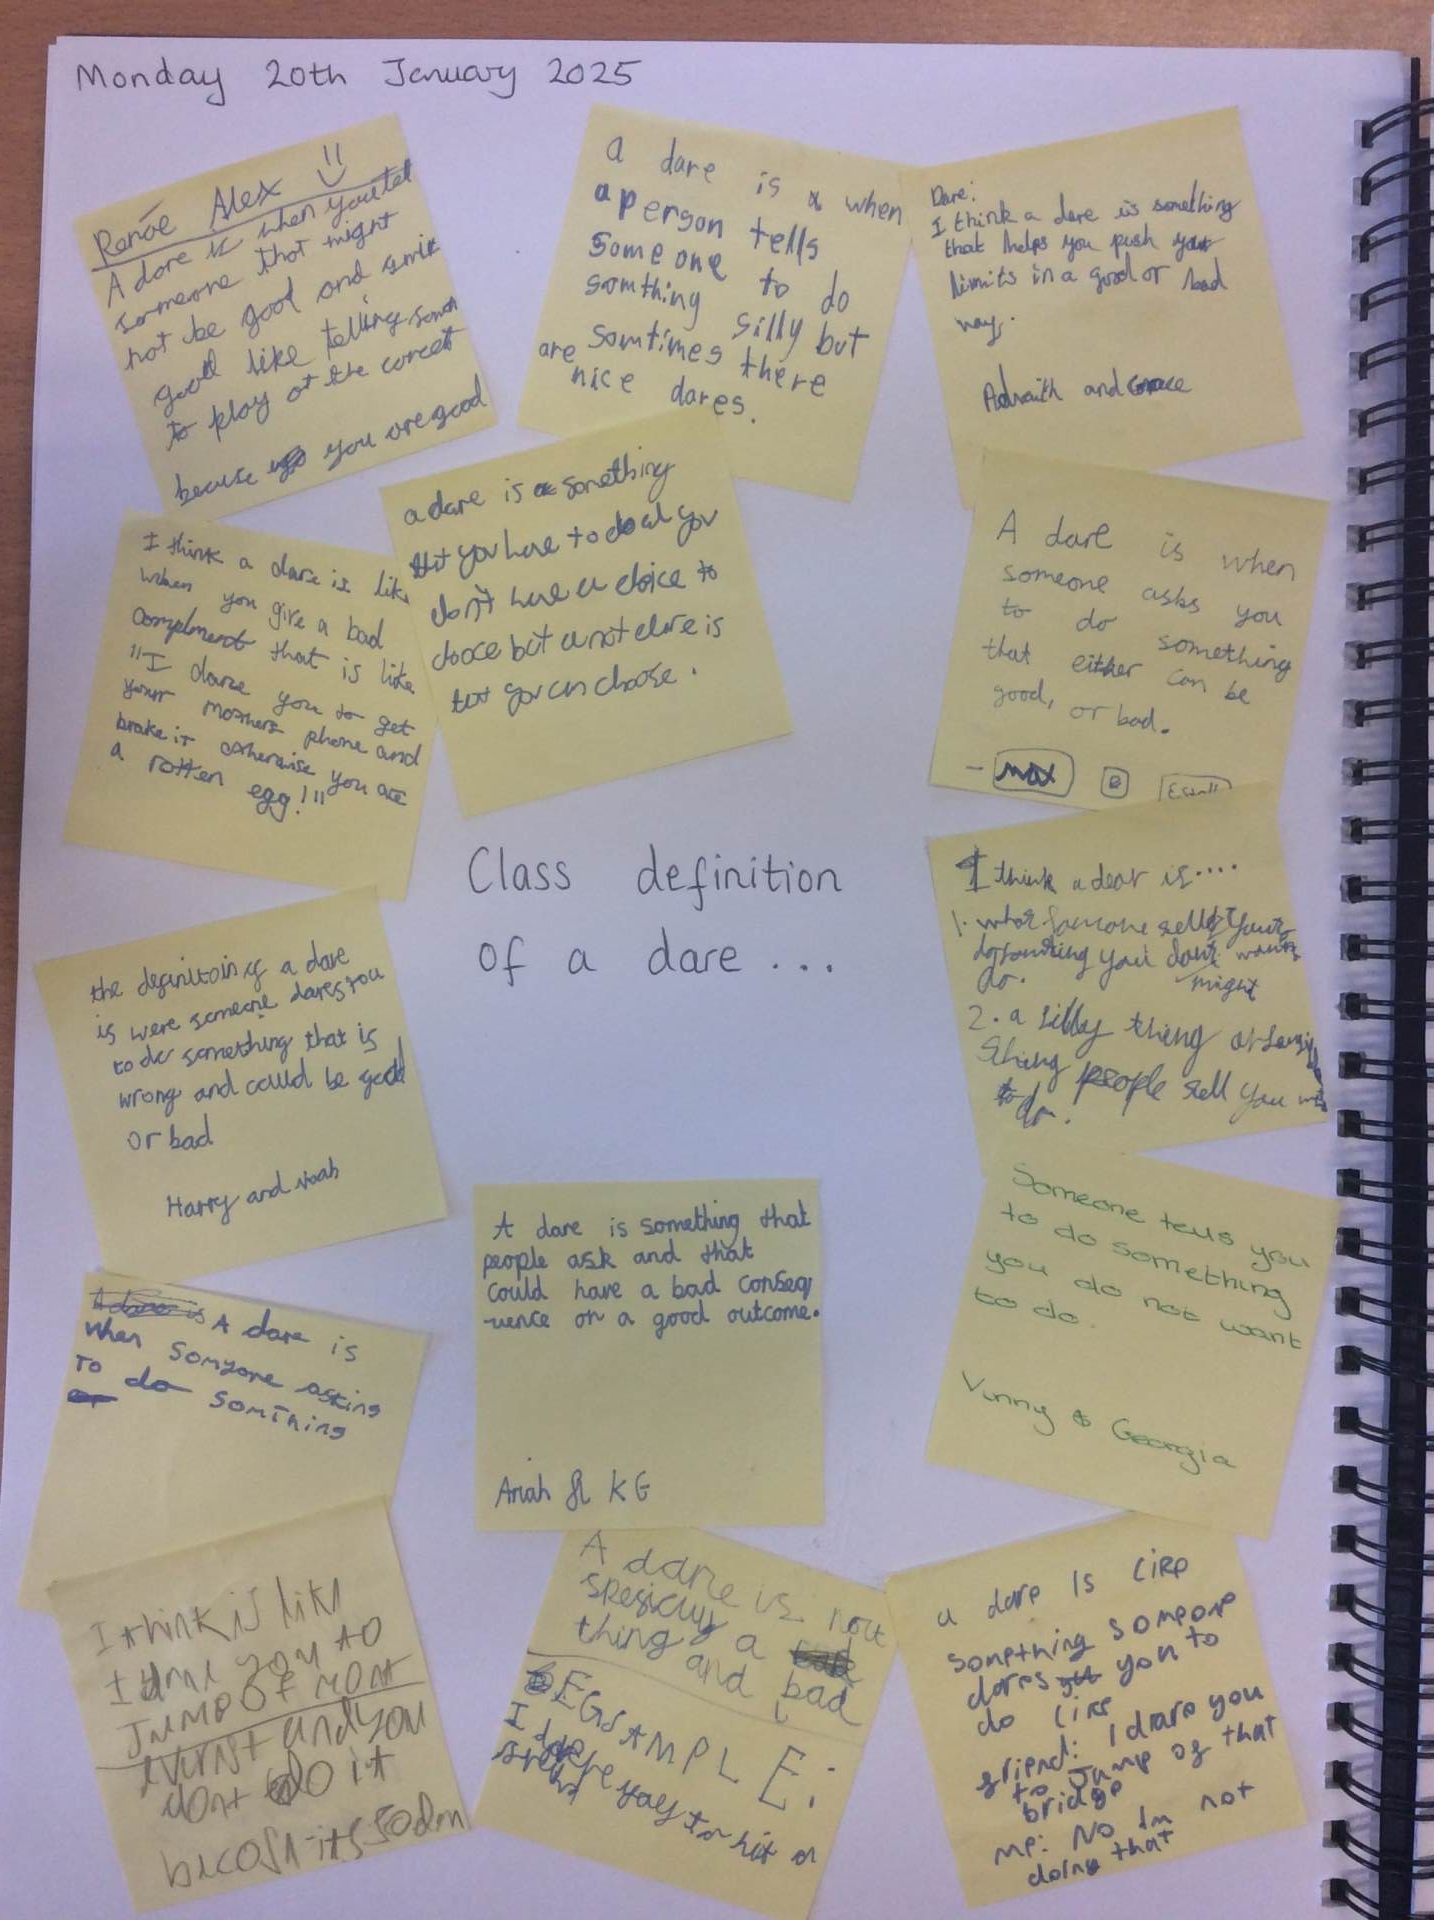 Monday 20th January 2025
Renée Alex
A dare is when you tel
someone that might
not be good and
good like telling
to play at the
becuse you are good
a dare is a when
a person tells
someone to do
somthing silly but
are somtimes there
nice dares.
Dare:
I think a dare is something
that helps you push your
limits in a good or bad
way.
Advaith and Grace
I think a dare is lik
when you give a bad
complment that is like
"I dare you to get
your mothers phone and
brake it otherwise you are
a rotten egg!"
a dare is something
you have to do
don't have a choice to
but dare is
you can choose.
A dare is when
someone asks you
to do something
that either can be
good, or bad.
- max
Class definition
of a dare ...
I think a dear is....
1. someone
you don't
do. might
2. a silly thing
thing people you
to do.
the definitoin of a dare
is were someone dares you
to do something that is
wrong and could be good
or bad
Harry and Noah
A dare is something that
people ask and that
could have a bad conseq
uence or a good outcome.
Ariah & KG
Someone tells you
to do something
you do not want
to do.
Vinny & Georgia
A dare is
when somyone asking
To do somthing
I think is like
I you to
Jump of mont
and you
dont do it
A dare is not
spesicluy a
thing and bad
EGSAMPLE:
I you to hit a
a dare is like
something someone
dares you to
do like
friend: I dare you
to jump of that
bridge
me: No Im not
doing that